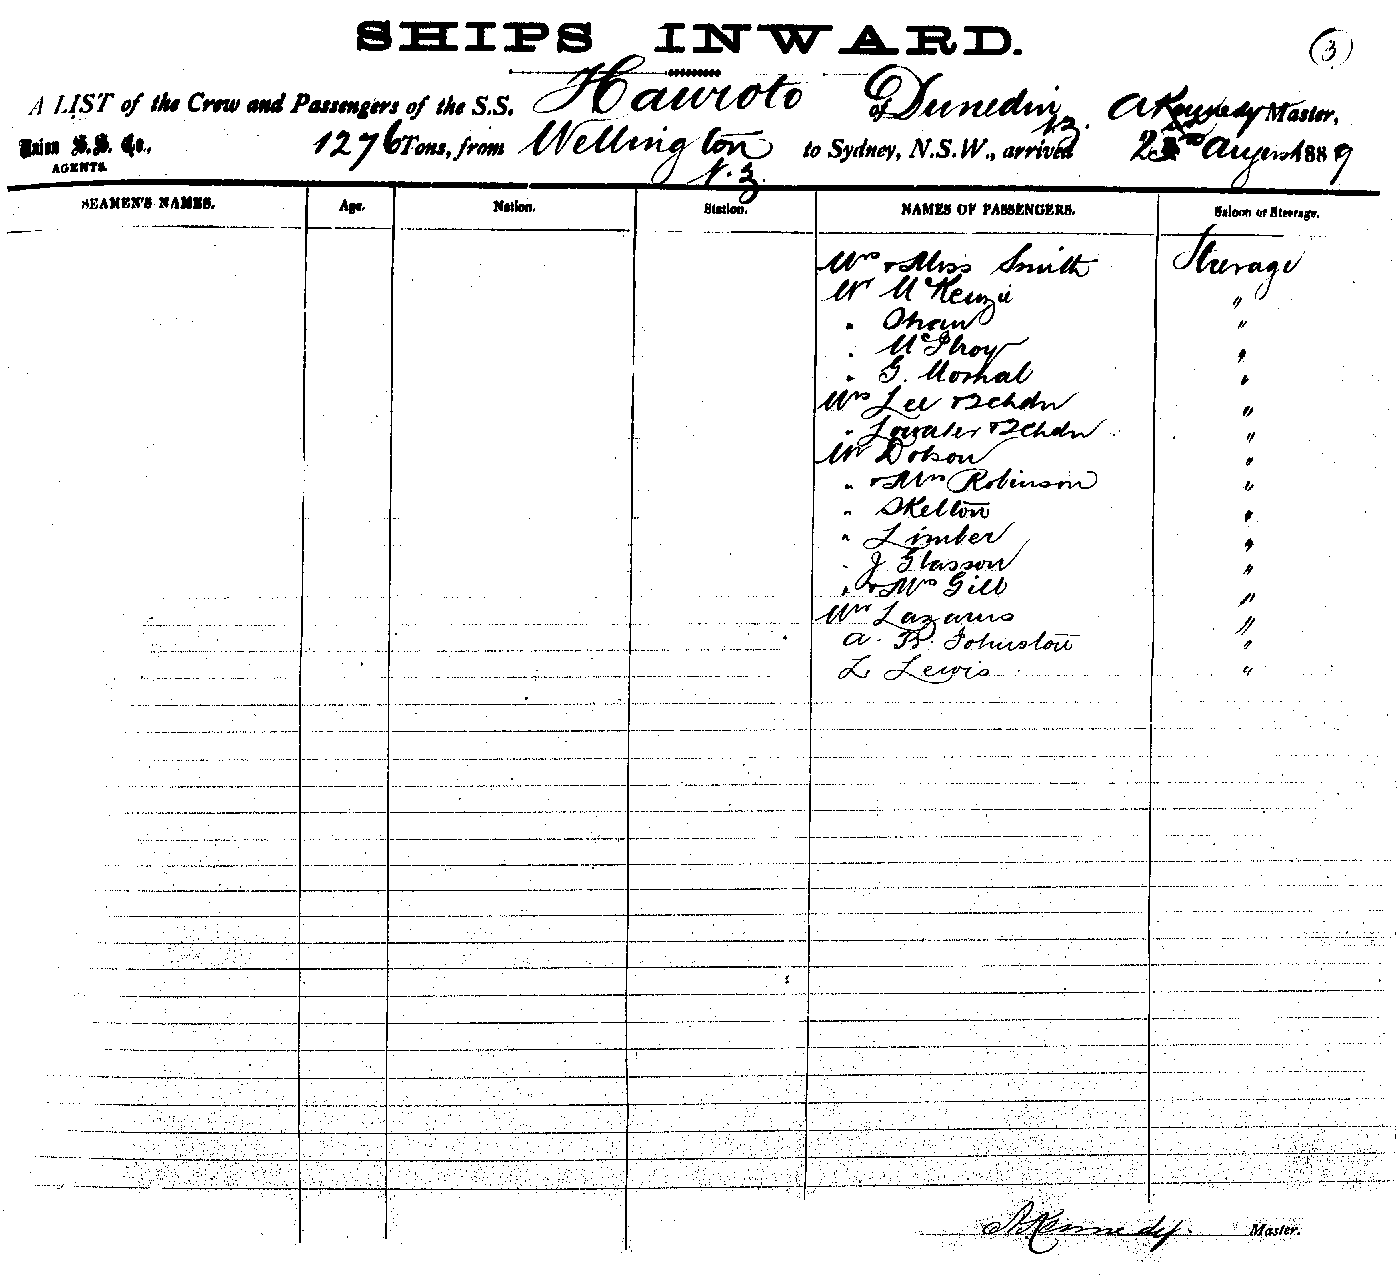 SHIPS INWARD.
3
A LIST of the Crew and Passengers of the S.S. Hauroto of Dunedin N.Z. A Kennedy Master,
Union S.S. Co., AGENTS. 1276 Tons, from Wellington N.Z. to Sydney, N.S.W., arrived August 1889
SEAMEN'S NAMES. Age. Nation. Station. NAMES OF PASSENGERS. Saloon or Steerage.
Mrs & Miss Smith Steerage
Mr McKenzie "
" Shaw "
" McIlroy "
" G. "
Mrs Lee & 2 Chdn "
" Lowater & 2 Chdn "
Mr Dobson "
" & Mrs Robinson "
" Skelton "
" Limber "
" J Glasson "
" & Mrs Gill "
Lazarus "
A. B. Johnston "
L Lewis "
A Kennedy Master.